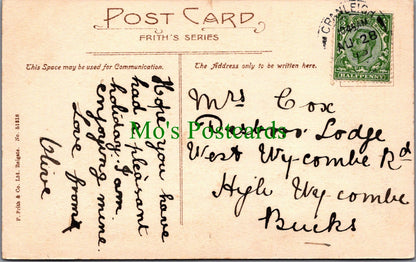 POST CARD
FRITH'S SERIES
This Space may be used for Communication.
The Address only to be written here.
Hope you have
had pleasant
holiday. I am
enjoying mine.
Love from
Olive
Mrs Cox
Lodge
West Wycombe Rd
High Wycombe
Bucks
CRANLEIGH
28
HALFPENNY
F. Frith & Co. Ltd. Reigate. No.
Mo's Postcards